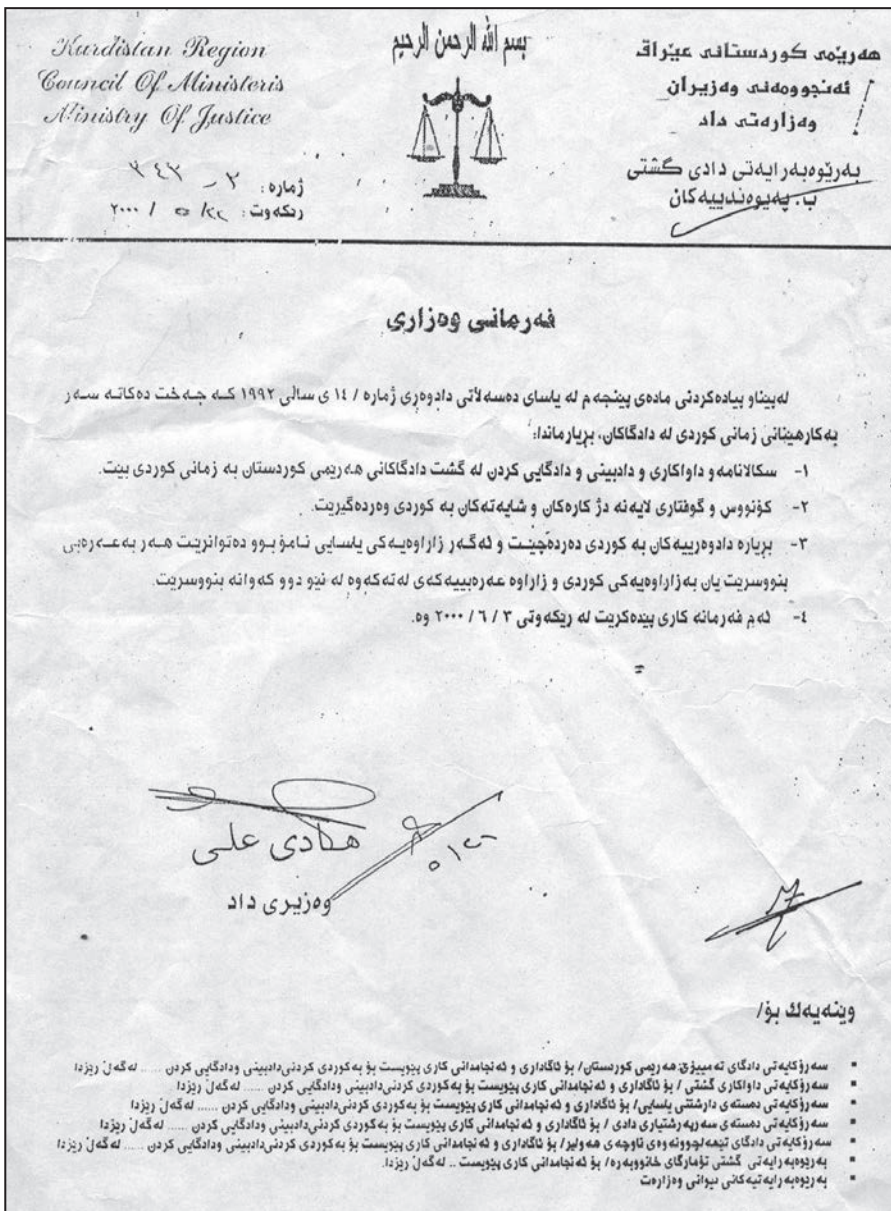 Kurdistan Region
Council Of Ministeris
Ministry Of Justice
بسم الله الرحمن الرحيم
هەرێمی کوردستانی عێراق
ئەنجوومەنی وەزیران
وەزارەتی داد
بەرێوەبەرایەتی دادی گشتی
ب. پەیوەندییەکان
ژمارە: ٣ - ٣٤٣
ریکەوت: / ٥ / ٢٠٠٠
فەرمانی وەزاری
لەپێناو پیادەکردنی مادەی پێنجەم لە یاسای دەسەڵاتی دادوەری ژمارە / ١٤ ی ساڵی ١٩٩٢ کە جەخت دەکاتە سەر
بەکارهێنانی زمانی کوردی لە دادگاکان، بریارماندا:
١- سکالانامەو داواکاری و دادبینی و دادگایی کردن لە گشت دادگاکانی هەرێمی کوردستان بە زمانی کوردی بێت.
٢- کۆنووس و گوفتاری لایەنە دژ کارەکان و شایەتەکان بە کوردی وەردەگیرێت.
٣- بریارە دادوەرییەکان بە کوردی دەردەچێت و ئەگەر زاراوەیەکی یاسایی نامۆ بوو دەتوانرێت هەر بەعەرەبی
بنووسرێت یان بەزاراوەیەکی کوردی و زاراوە عەرەبییەکەی لەتەکەوە لە نێو دوو کەوانە بنووسرێت.
٤- ئەم فەرمانە کاری پێدەکرێت لە رێکەوتی ٣ / ٦ / ٢٠٠٠ وە.
هادی علی
وەزیری داد
وێنەیەك بۆ/
▪ سەرۆکایەتی دادگای تەمییزی هەرێمی کوردستان/ بۆ ئاگاداری و ئەنجامدانی کاری پێویست بۆ بەکوردی کردنی دادبینی ودادگایی کردن ...... لەگەڵ رێزدا
▪ سەرۆکایەتی داواکاری گشتی / بۆ ئاگاداری و ئەنجامدانی کاری پێویست بۆ بەکوردی کردنی دادبینی ودادگایی کردن ...... لەگەڵ رێزدا
▪ سەرۆکایەتی دەستەی دارشتنی یاسایی/ بۆ ئاگاداری و ئەنجامدانی کاری پێویست بۆ بەکوردی کردنی دادبینی ودادگایی کردن ...... لەگەڵ رێزدا
▪ سەرۆکایەتی دەستەی سەرپەرشتیاری دادی / بۆ ئاگاداری و ئەنجامدانی کاری پێویست بۆ بەکوردی کردنی دادبینی ودادگایی کردن ...... لەگەڵ رێزدا
▪ سەرۆکایەتی دادگای تێهەلچوونەوەی ناوچەی هەولێر/ بۆ ئاگاداری و ئەنجامدانی کاری پێویست بۆ بەکوردی کردنی دادبینی ودادگایی کردن ...... لەگەڵ رێزدا
▪ بەرێوەبەرایەتی گشتی تۆمارگای خانووبەرە/ بۆ ئەنجامدانی کاری پێویست .. لەگەڵ رێزدا.
▪ بەرێوەبەرایەتیەکانی دیوانی وەزارەت